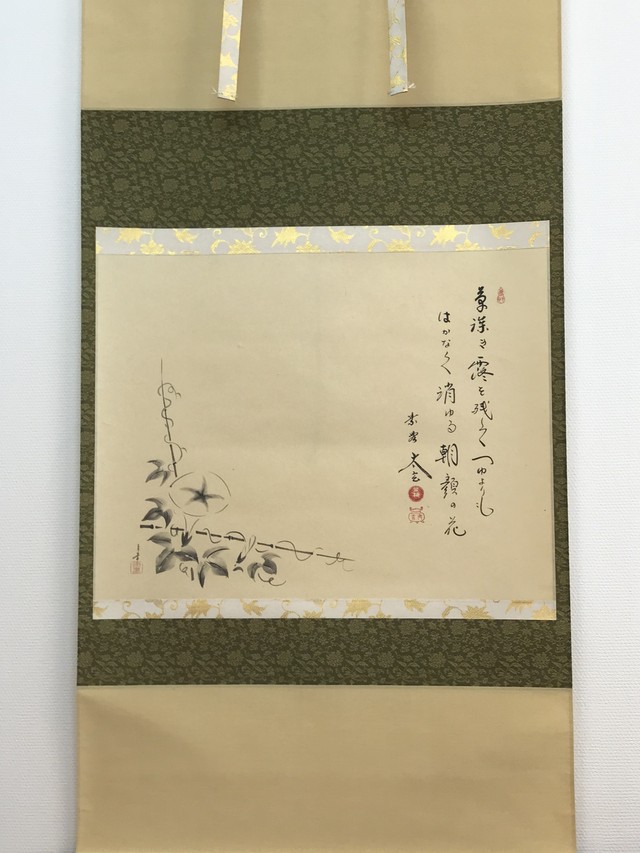 草深き露を残してつゆよりも
はかなく消ゆる朝顔の花
紫野